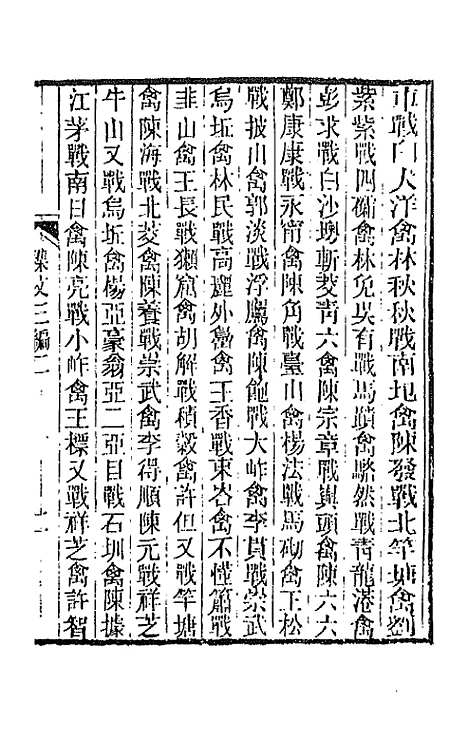 戰白犬洋禽林秋秋戰南圯禽陳發戰北竿塘禽劉
紫紫戰四礵禽林免吳有戰馬蹟禽駱然戰靑龍港禽
彭求戰白沙嶼斬茭靑六禽陳宗章戰輿頭禽陳六六
鄭康康戰永甯禽陳角戰臺山禽楊法戰馬砌禽王松
戰披山禽郭淡戰浮鷹禽陳飽戰大岞禽李貫戰崇武
烏坵禽林民戰高麗外鱟禽王香戰東岑禽不懂簫戰
韭山禽王長戰獺窟禽胡解戰積穀禽許但又戰竿塘
禽陳海戰北茭禽陳養戰崇武禽李得順陳元戰祥芝
牛山又戰烏坵禽楊亞豪翁亞二亞目戰石圳禽陳據
江茅戰南日禽陳亮戰小岞禽王標又戰祥芝禽許智
集文三編二